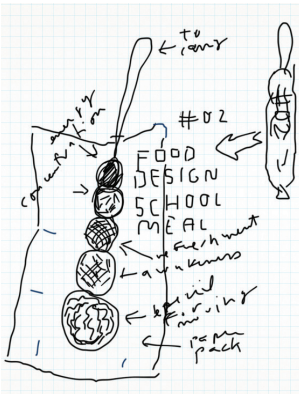 to
carry
#02
#02
energy
concentration
FOOD
DESIGN
SCHOOL
MEAL
refreshment
quickness
moving
pack